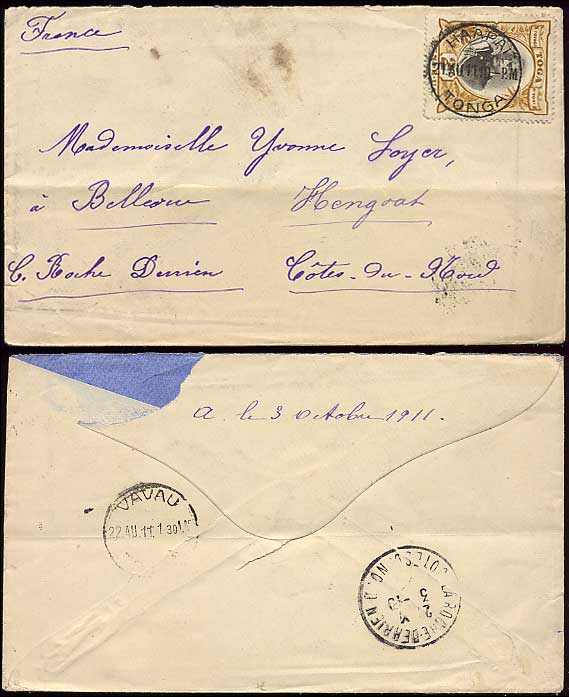 France
HAAPAI
TONGA
TOGA
Mademoiselle Yvonne Loyer,
à Bellevue Hengoat
C. Roche Derrien Côtes-du-Nord
A. le 3 Octobre 1911.
VAVAU
22 AU. 11. 1 30
LA ROCHE-DERRIEN COTES DU NORD
3 -10